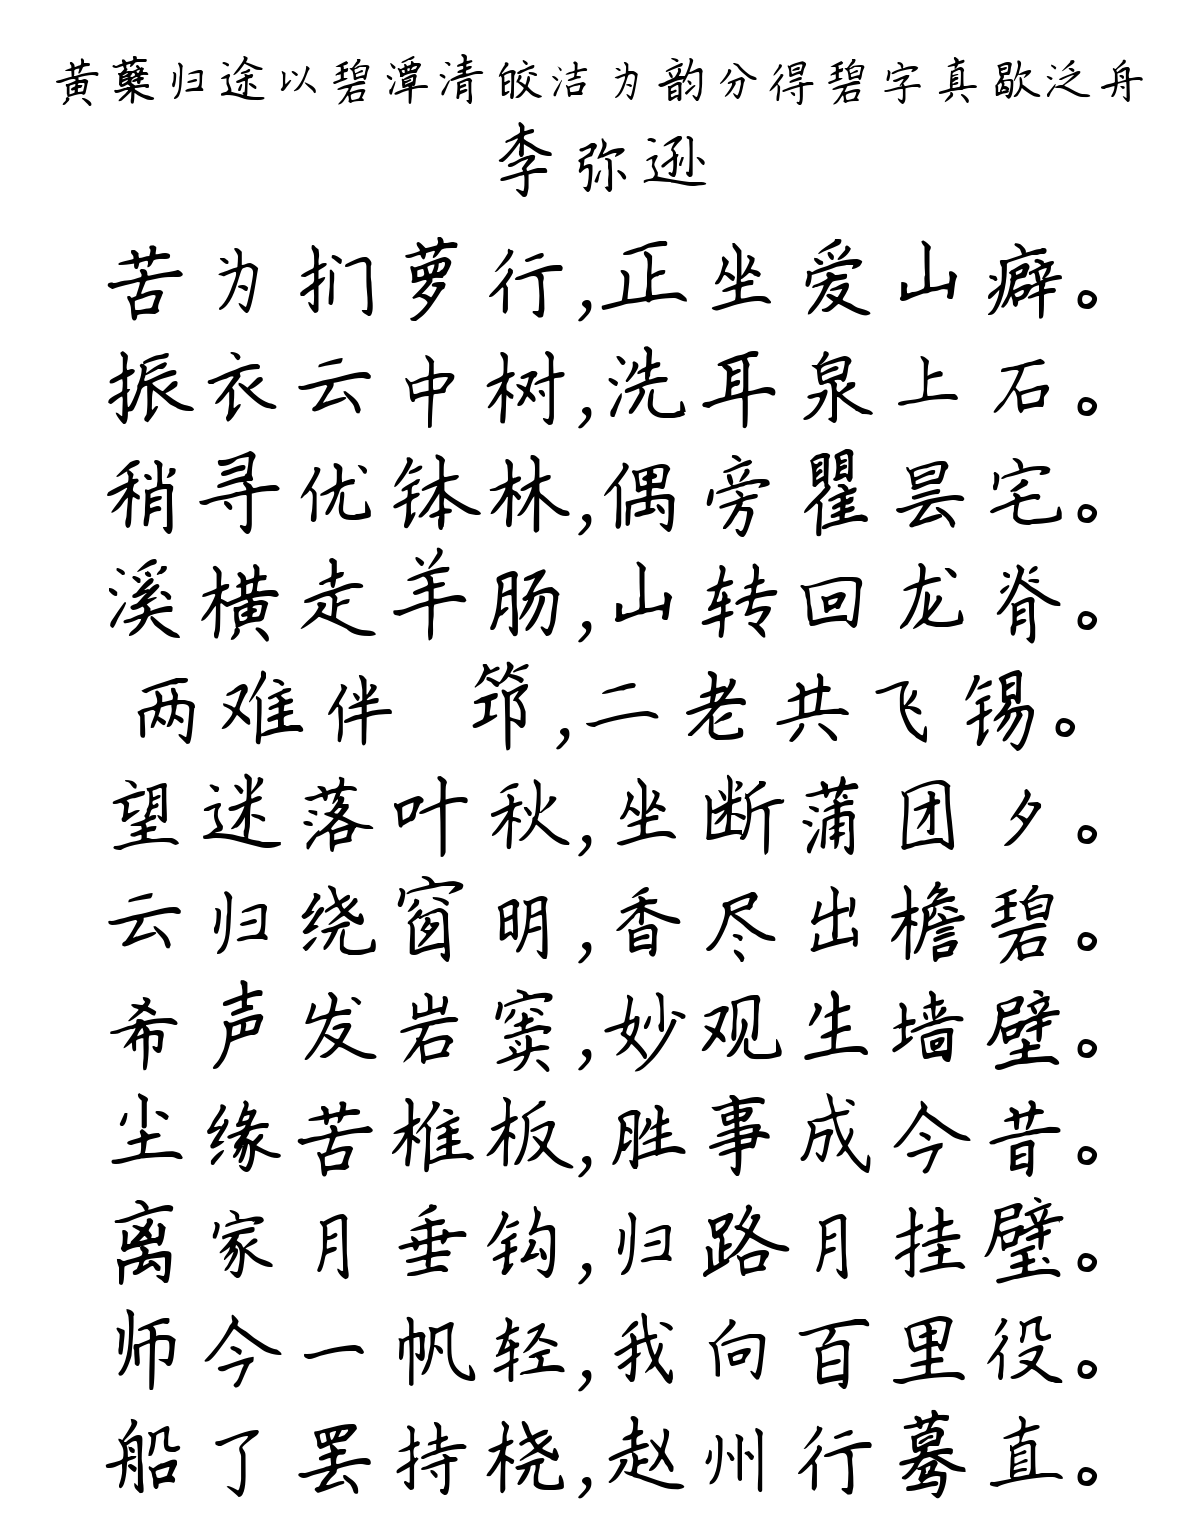 黄蘖归途以碧潭清皎洁为韵分得碧字真歇泛舟
李弥逊
苦为扪萝行,正坐爱山癖。
振衣云中树,洗耳泉上石。
稍寻优钵林,偶旁瞿昙宅。
溪横走羊肠,山转回龙脊。
两难伴 筇,二老共飞锡。
望迷落叶秋,坐断蒲团夕。
云归绕窗明,香尽出檐碧。
希声发岩窦,妙观生墙壁。
尘缘苦椎板,胜事成今昔。
离家月垂钩,归路月挂璧。
师今一帆轻,我向百里役。
船了罢持桡,赵州行蓦直。